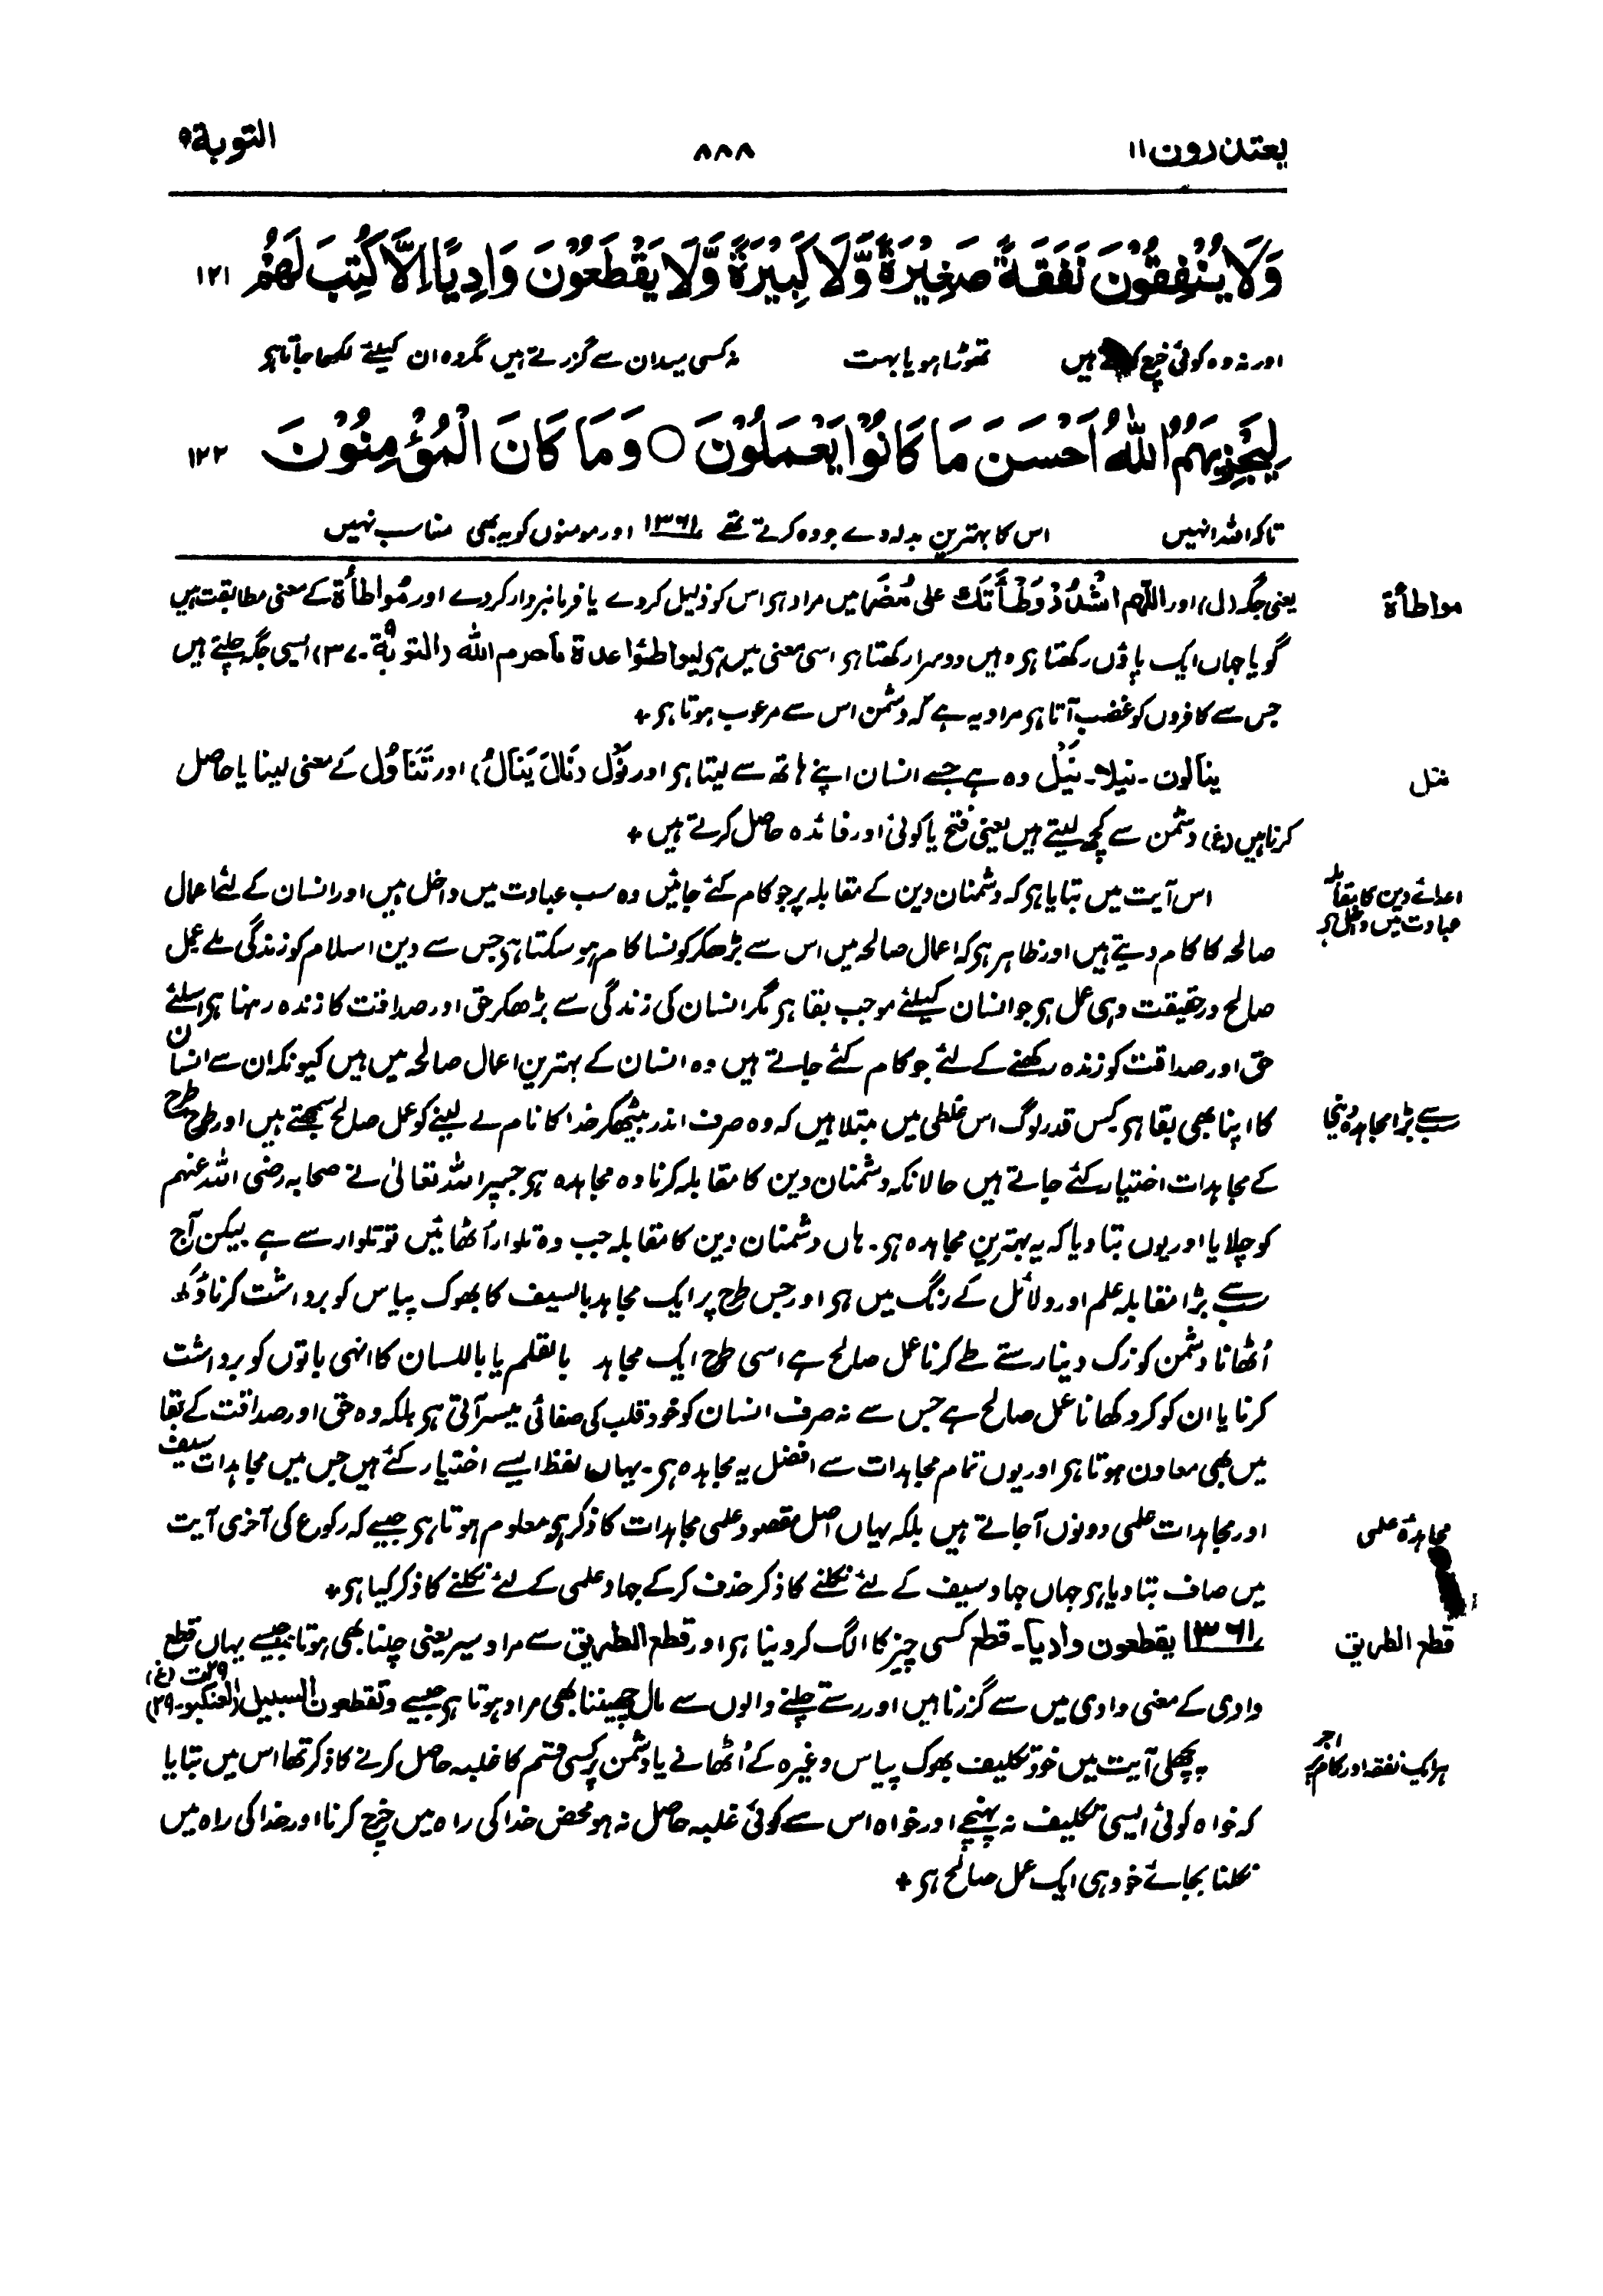 یعتذرون ۱۱ ۸۸۸ التوبة ۹
وَلَا يُنْفِقُوْنَ نَفَقَةً صَغِيْرَةً وَّلَا كَبِيْرَةً وَّلَا يَقْطَعُوْنَ وَادِيًا اِلَّا كُتِبَ لَهُمْ ۱۲۱
اور نہ وہ کوئی خرچ کرتے ہیں تھوڑا ہو یا بہت نہ کسی میدان سے گزرتے ہیں مگر وہ ان کیلئے لکھا جاتا ہی
لِيَجْزِيَهُمُ اللّٰهُ اَحْسَنَ مَا كَانُوْا يَعْمَلُوْنَ ○ وَمَا كَانَ الْمُؤْمِنُوْنَ ۱۲۲
تاکہ اللہ انہیں اس کا بہترین بدلہ دے جو وہ کرتے تھے ۱۳۶۱ اور مومنوں کو یہ بھی مناسب نہیں
مواطأة
یعنی جگہ (ل) اور اللّٰهم اشْدُدْ وَطْأَتَكَ علی مُضَر میں مراد ہی اس کو ذلیل کر دے یا فرمانبردار کر دے اور مُواطأة کے معنی مطابقت ہیں
گویا جہاں ایک پاؤں رکھتا ہی وہیں دوسرا رکھتا ہی اسی معنی میں ہی ليواطئوا عدة ماحرم اللّٰه (التوبة۹۔۳۷) ایسی جگہ چلتے ہیں
جس سے کافروں کو غضب آتا ہی مراد یہ ہے کہ دشمن اس سے مرعوب ہوتا ہی +
نیل
ینالون۔ نیلا۔ نَیْل وہ ہے جسے انسان اپنے ہاتھ سے لیتا ہی اور نَوْل (نَالَ يَنَالُ) اور تَنَاوُل کے معنی لینا یا حاصل
کرنا ہیں (غ) دشمن سے کچھ لیتے ہیں یعنی فتح یا کوئی اور فائدہ حاصل کرتے ہیں +
اعدائے دین کا مقابلہ
عبادت میں داخل ہی
اس آیت میں بتایا ہی کہ دشمنان دین کے مقابلہ پر جو کام کئے جائیں وہ سب عبادت میں داخل ہیں اور انسان کے لئے اعمال
صالحہ کا کام دیتے ہیں اور ظاہر ہی کہ اعمال صالحہ میں اس سے بڑھکر کونسا کام ہو سکتا ہی جس سے دین اسلام کو زندگی ملے عمل
صالح درحقیقت وہی عمل ہی جو انسان کیلئے موجب بقا ہی مگر انسان کی زندگی سے بڑھکر حق اور صداقت کا زندہ رہنا ہی اسلئے
حق اور صداقت کو زندہ رکھنے کے لئے جو کام کئے جاتے ہیں وہ انسان کے بہترین اعمال صالحہ میں ہیں کیونکہ ان سے انسان
سب سے بڑا مجاہدہ دینی
کا اپنا بھی بقا ہی کس قدر لوگ اس غلطی میں مبتلا ہیں کہ وہ صرف اندر بیٹھکر خدا کا نام لے لینے کو عمل صالح سمجھتے ہیں اور طرح طرح
کے مجاہدات اختیار کئے جاتے ہیں حالانکہ دشمنان دین کا مقابلہ کرنا وہ مجاہدہ ہی جسپر اللہ تعالیٰ نے صحابہ رضی اللہ عنہم
کو چلایا اور یوں بتا دیا کہ یہ بہترین مجاہدہ ہی۔ ہاں دشمنان دین کا مقابلہ جب وہ تلوار اُٹھائیں تو تلوار سے ہے لیکن آج
سب سے بڑا مقابلہ علم اور دلائل کے رنگ میں ہی اور جس طرح پر ایک مجاہد بالسیف کا بھوک پیاس کو برداشت کرنا دُکھ
اُٹھانا دشمن کو زک دینا رستے طے کرنا عمل صالح ہے اسی طرح ایک مجاہد بالقلم یا باللسان کا انہی باتوں کو برداشت
کرنا یا ان کو کر دکھانا عمل صالح ہے جس سے نہ صرف انسان کو خود قلب کی صفائی میسر آتی ہی بلکہ وہ حق اور صداقت کے بقا
میں بھی معاون ہوتا ہی اور یوں تمام مجاہدات سے افضل یہ مجاہدہ ہی۔ یہاں لفظ ایسے اختیار کئے ہیں جس میں مجاہدات سیف
مجاہدہ علمی
اور مجاہدات علمی دونوں آجاتے ہیں بلکہ یہاں اصل مقصود علمی مجاہدات کا ذکر ہی معلوم ہوتا ہی جیسے کہ رکوع کی آخری آیت
میں صاف بتا دیا ہی جہاں جہاد سیف کے لئے نکلنے کا ذکر حذف کرکے جہاد علمی کے لئے نکلنے کا ذکر کیا ہی +
قطع الطریق
۱۳۶۱ یقطعون وادیا۔ قطع کسی چیز کا الگ کر دینا ہی اور قطع الطریق سے مراد سیر یعنی چلنا بھی ہوتا ہی جیسے یہاں قطع
وادی کے معنی وادی میں سے گزرنا ہیں اور رستے چلنے والوں سے مال چھیننا بھی مراد ہوتا ہی جیسے وتقطعون السبیل (العنکبوت۲۹۔۲۹) (غ)
ہر ایک نفقہ اور کام پر اجر
پچھلی آیت میں خود تکلیف بھوک پیاس وغیرہ کے اُٹھانے یا دشمن پر کسی قسم کا غلبہ حاصل کرنے کا ذکر تھا اس میں بتایا
کہ خواہ کوئی ایسی تکلیف نہ پہنچے اور خواہ اس سے کوئی غلبہ حاصل نہ ہو محض خدا کی راہ میں خرچ کرنا اور خدا کی راہ میں
نکلنا بجائے خود ہی ایک عمل صالح ہی +